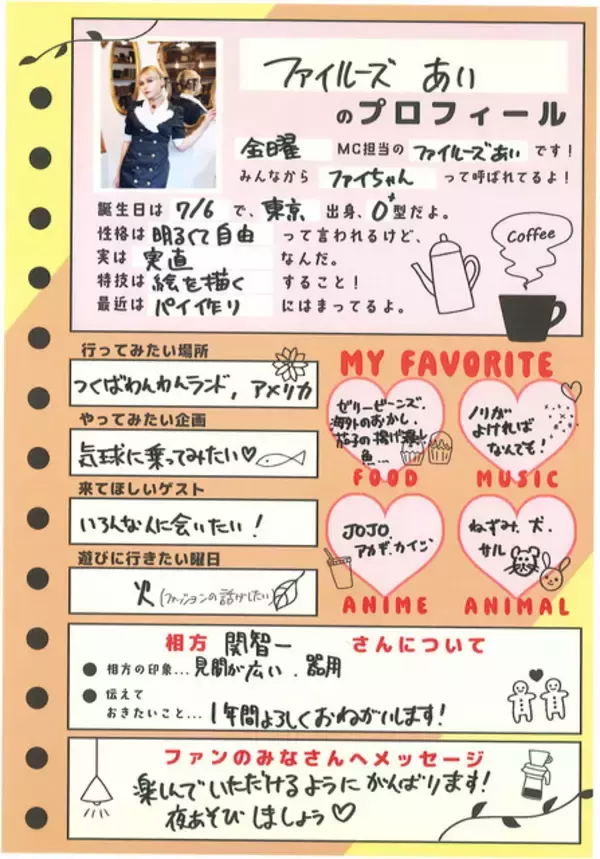 ファイルーズ あい
のプロフィール
金曜 MC担当の ファイルーズあい です！
みんなから ファイちゃん って呼ばれてるよ！
誕生日は 7/6 で、東京 出身、O⁺型だよ。
性格は 明るくて自由 って言われるけど、
実は 実直 なんだ。
特技は 絵を描く すること！
最近は パイ作り にはまってるよ。
Coffee
行ってみたい場所
つくばわんわんランド, アメリカ
やってみたい企画
気球に乗ってみたい♡
来てほしいゲスト
いろんな人に会いたい！
遊びに行きたい曜日
火 (ファッションの話がしたい)
MY FAVORITE
ゼリービーンズ.
海外のおかし.
茄子の揚げ浸し
魚…
FOOD
ノリが
よければ
なんでも！
MUSIC
JOJO.
アカギ.カイジ
ANIME
ねずみ.犬.
サル
ANIMAL
相方 関智一 さんについて
● 相方の印象… 見聞が広い . 器用
● 伝えて
おきたいこと… 1年間よろしくおねがいします！
ファンのみなさんへメッセージ
楽しんでいただけるように がんばります！
夜あそび しましょう♡